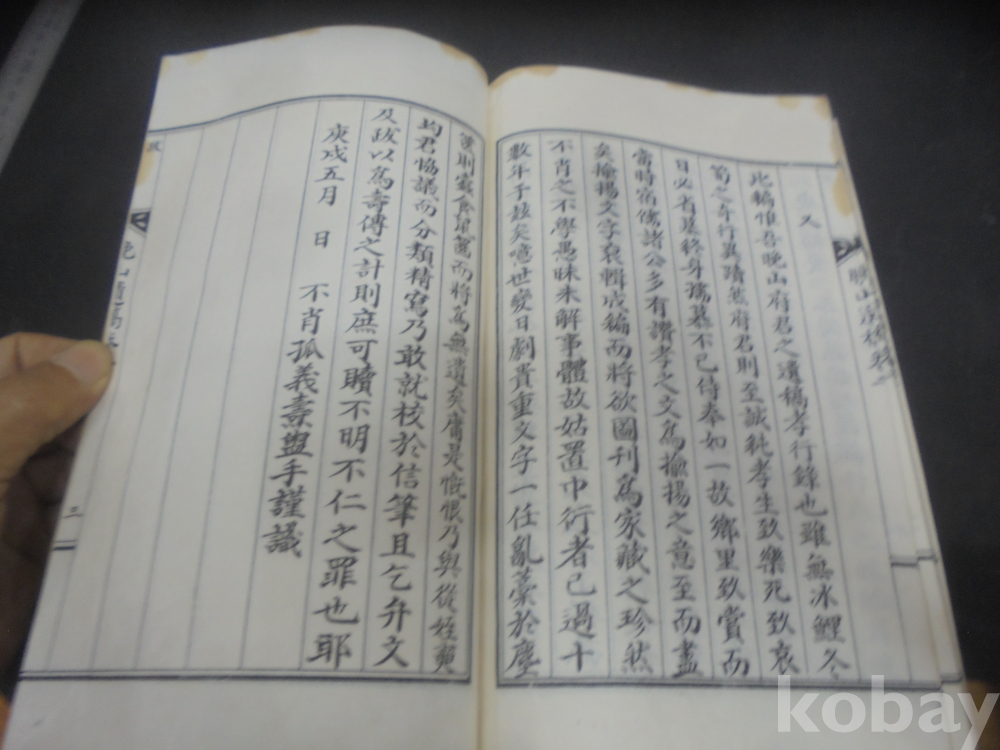 又
此編惟吾晩山府君之遺稿孝行錄也雖無冰鯉冬
筍之奇行異蹟然府君則至誠純孝生致樂死致哀
日必省墓終身孺慕不已侍奉如一故鄉里致賞而
當時宿儒諸公多有讚孝之文爲揄揚之意至而盡
矣揄揚文字裒輯成編而將欲圖刊爲家藏之珍然
不肖之不學愚昧未解事體故姑置巾衍者已過十
數年于玆矣噫世變日劇貴重文字一任亂藁於塵
篋則食而將爲無遺矣庸是慨恨乃與從姪
均君協議而分類精寫乃敢就校於信筆且乞弁文
及跋以爲壽傳之計則庶可贖不明不仁之罪也耶
庚戌五月 日 不肖孤義壽盥手謹識
跋
三
kobay